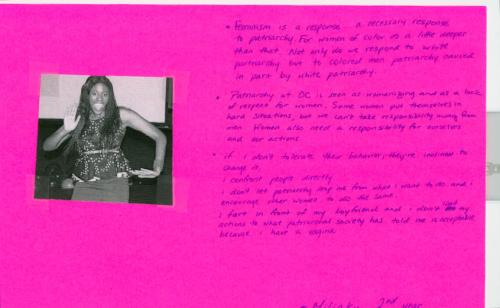 • Feminism is a response.. a necessary response
to patriarchy. For women of color its a little deeper
than that. Not only do we respond to white
patriarchy but to colored men patriarchy caused
in part by white patriarchy.
• Patriarchy at OC is seen as womanizing and as a lack
of respect for women. Some women put themselves in
hard situations, but we can't take responsibility away from
men. Women also need a responsibility for ourselves
and our actions.
• if i don't tolerate their behavior, they're inclined to
change it.
i confront people directly
i don't let patriarchy stop me from what i want to do and i
encourage other women to do the same.
i fart in front of my boyfriend and i don't my
actions to what patriarchal society has told me is acceptable
because i have a vagina
2nd year